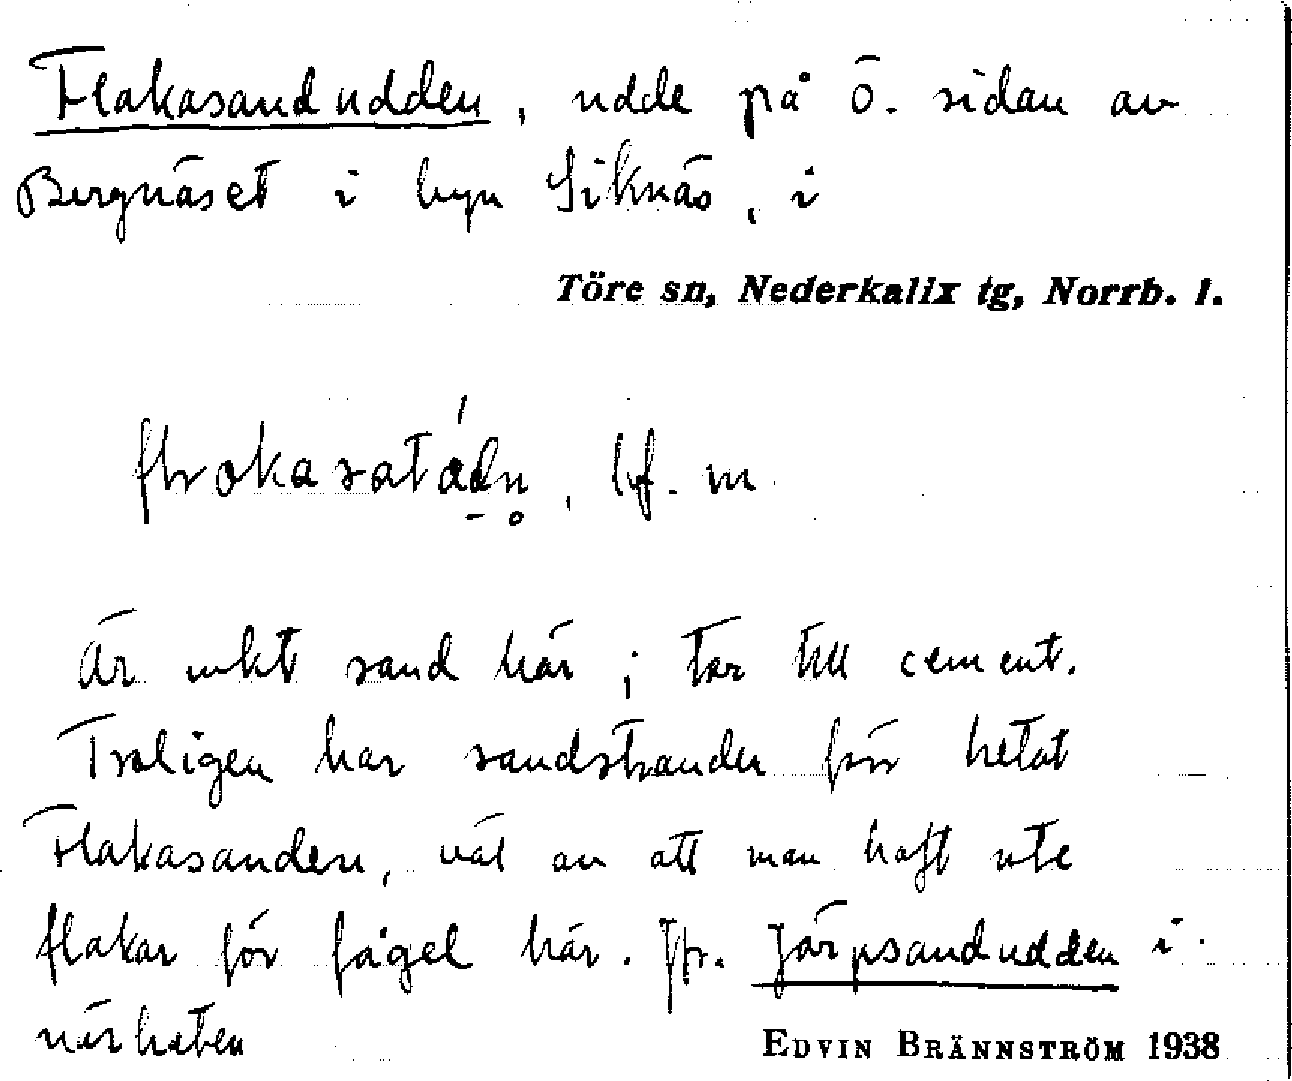 Flakasandudden, udde på ö. sidan av
Bergnäset i byn Siknäs, i
Töre sn, Nederkalix tg, Norrb. l.
bf. m
Är mkt sand här; tar till cement.
Troligen har sandstranden förr hetat
Flakasanden, väl av att man haft ute
flakar för fågel här. Jfr. Järpsandudden i
närheten
EDVIN BRÄNNSTRÖM 1938